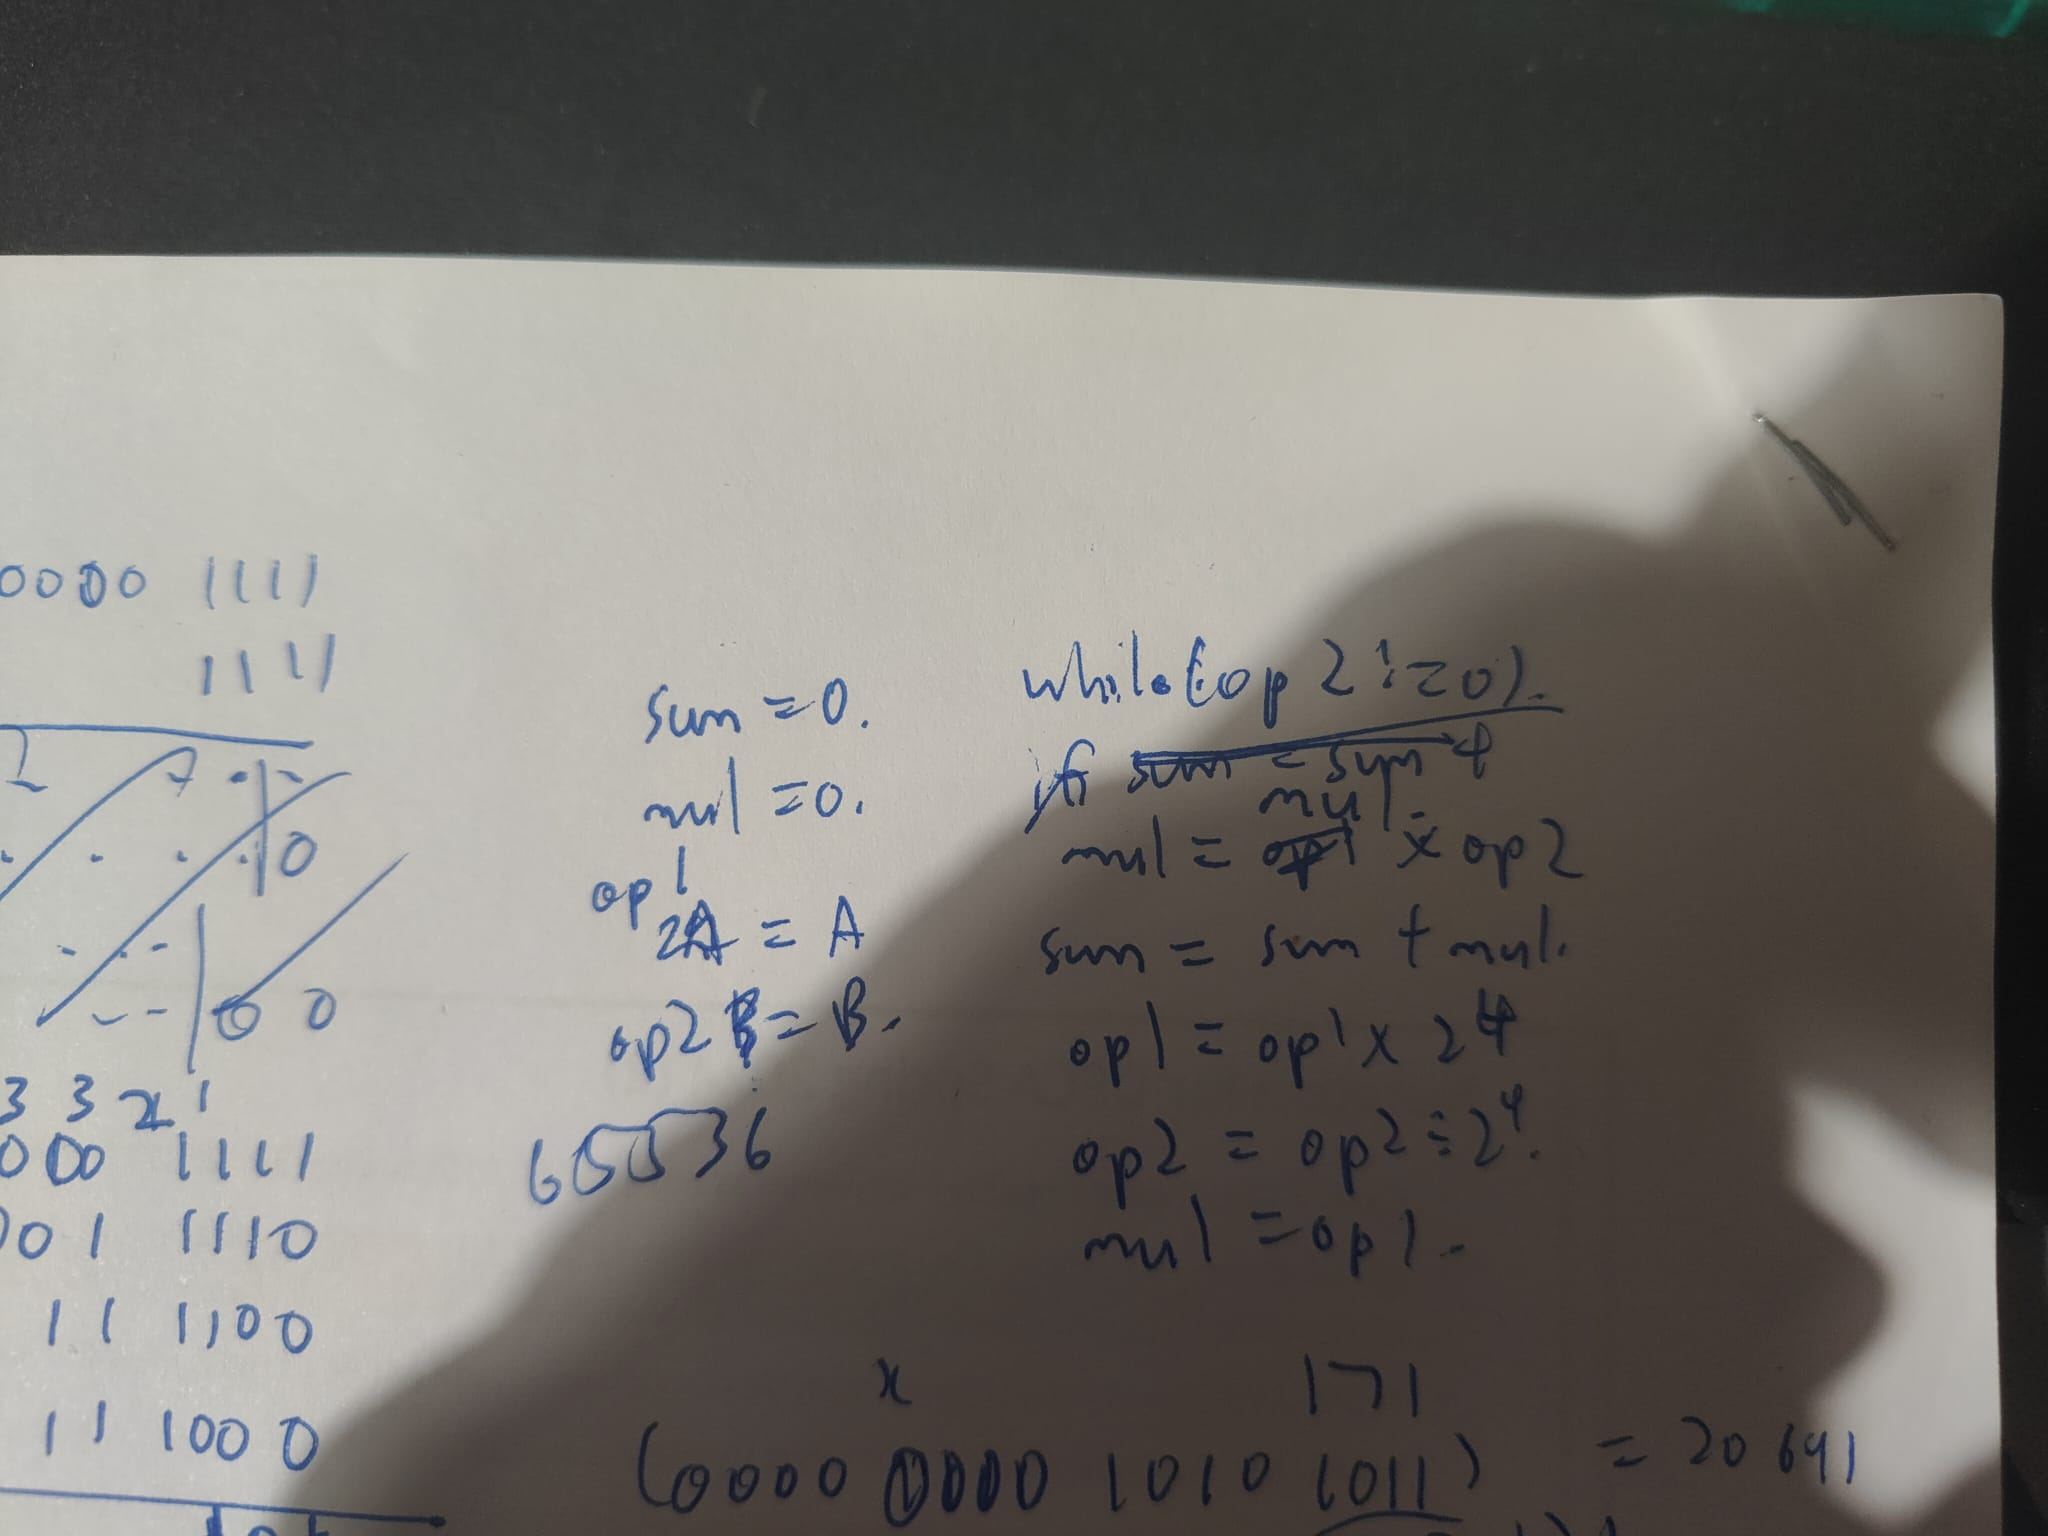 0000 1111
1111
0
0 0
3 3 2 1
000 1111
001 1110
11 1100
11 1000
sum = 0.
mul = 0.
op1
2A = A
op2 B = B.
65536
while (op2 != 0).
if sum = sum +
mul.
mul = op1 x op2
sum = sum + mul.
op1 = op1 x 2 4
op2 = op2 ÷ 2⁴.
mul = op1.
x 171
(0000 0000 1010 1011) = 20691